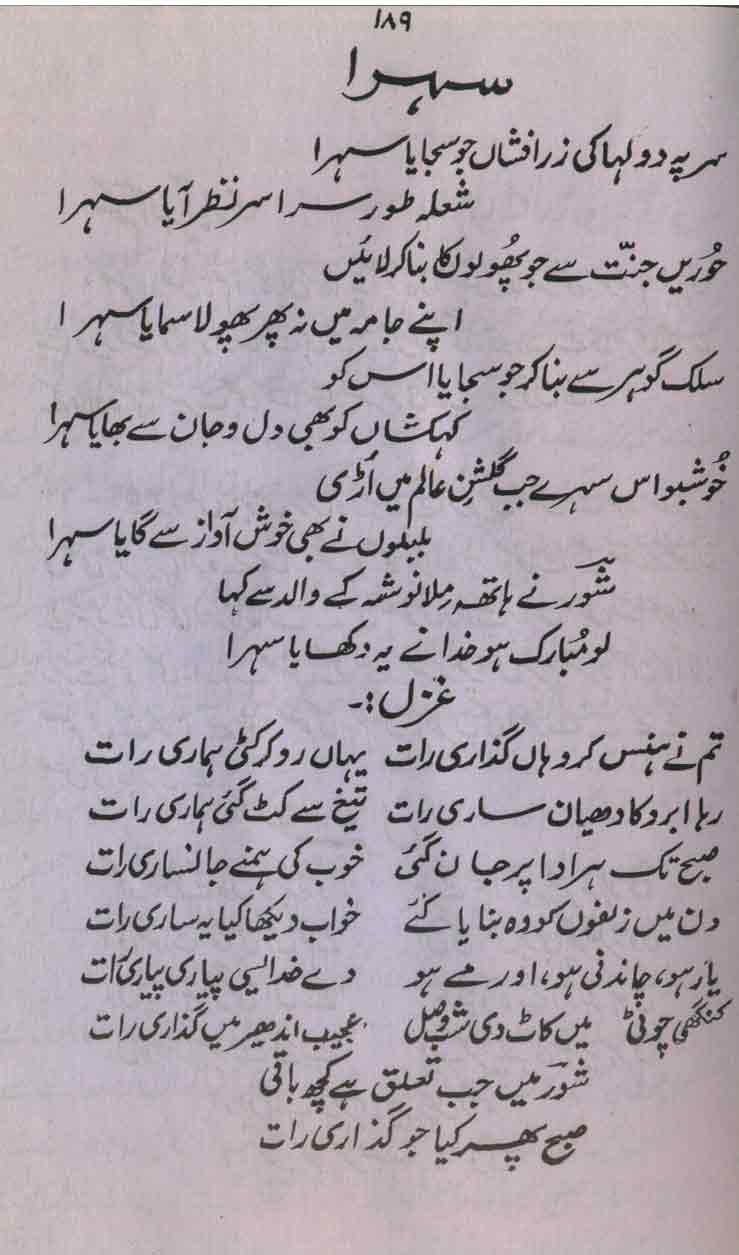 ۱۸۹
سہرا
سر پہ دولہا کی زر افشاں جو سجایا سہرا
شعلہ طور سراسر نظر آیا سہرا
حُوریں جنّت سے جو پھُولوں کا بنا کر لائیں
اپنے جامہ میں نہ پھر پھولا سمایا سہرا
سلک گوہر سے بنا کر جو سجایا اس کو
کہکشاں کو بھی دل و جان سے بھایا سہرا
خُوشبو اس سہرے جب گلشنِ عالم میں اُڑی
بلبلوں نے بھی خوش آواز سے گایا سہرا
شور نے ہاتھ ملا نوشہ کے والد سے کہا
لو مُبارک ہو خدا نے یہ دکھایا سہرا
غزل :۔
تم نے ہنس کر وہاں گذاری رات یہاں رو کر کٹی ہماری رات
رہا ابرو کا دھیان ساری رات تیغ سے کٹ گئی ہماری رات
صبح تک ہر ادا پر جان گئی خوب کی ہمنے جانساری رات
دن میں زلفوں کو وہ بنایا کئے خواب دیکھا کیا یہ ساری رات
یار ہو، چاندنی ہو، اور مے ہو دے خدا ایسی پیاری پیاری رات
کنگھی چوٹی میں کاٹ دی شب وصل عجیب اندھیر میں گذاری رات
شور میں جب تعلق ہے کچھ باقی
صبح پھر کیا جو گذاری رات